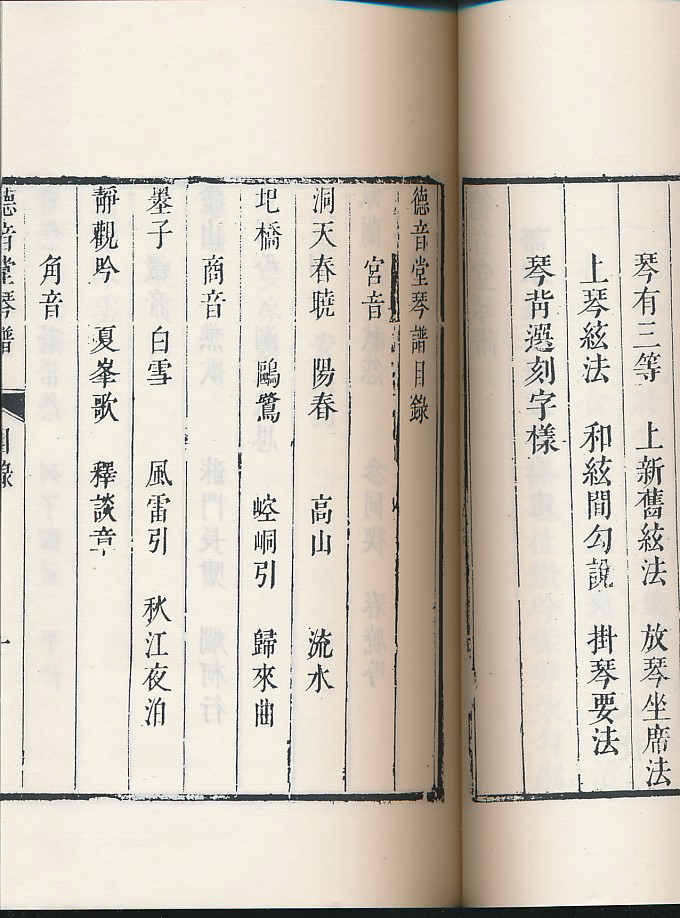 琴有三等 上新舊絃法 放琴坐席法
上琴絃法 和絃間勾說 掛琴要法
琴背選刻字樣
德音堂琴譜目錄
宮音
洞天春曉 陽春 高山 流水
圯橋 鷗鷺 崆峒引 歸來曲
商音
墨子 白雪 風雷引 秋江夜泊
靜觀吟 夏峯歌 釋談章
角音
德音堂琴譜 目錄 一